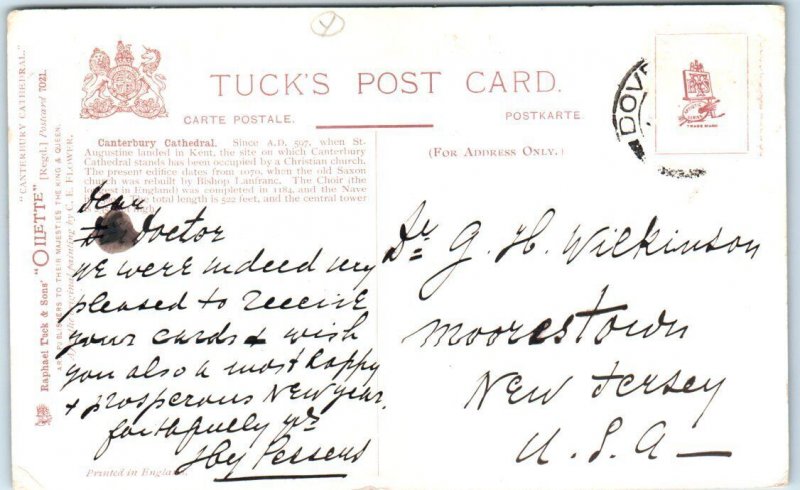 TUCK'S POST CARD.
CARTE POSTALE.
POSTKARTE.
(FOR ADDRESS ONLY.)
DOVE
TRADE MARK
"CANTERBURY CATHEDRAL."
Raphael Tuck & Sons' "OILETTE" [Regd.] Postcard 7021.
ART PUBLISHERS TO THEIR MAJESTIES THE KING & QUEEN.
painting by C. E. FLOWER.
Canterbury Cathedral. Since A.D. 597, when St.
Augustine landed in Kent, the site on which Canterbury
Cathedral stands has been occupied by a Christian church.
The present edifice dates from 1070, when the old Saxon
church was rebuilt by Bishop Lanfranc. The Choir (the
longest in England) was completed in 1184, and the Nave
total length is 522 feet, and the central tower
Dear
Doctor
we were indeed very
pleased to receive
your cards & wish
you also a most happy
& prosperous New year
faithfully yrs
Hy Pessers
Printed in England.
Dr G. H. Wilkinson
Moorestown
New Jersey
U. S. A —